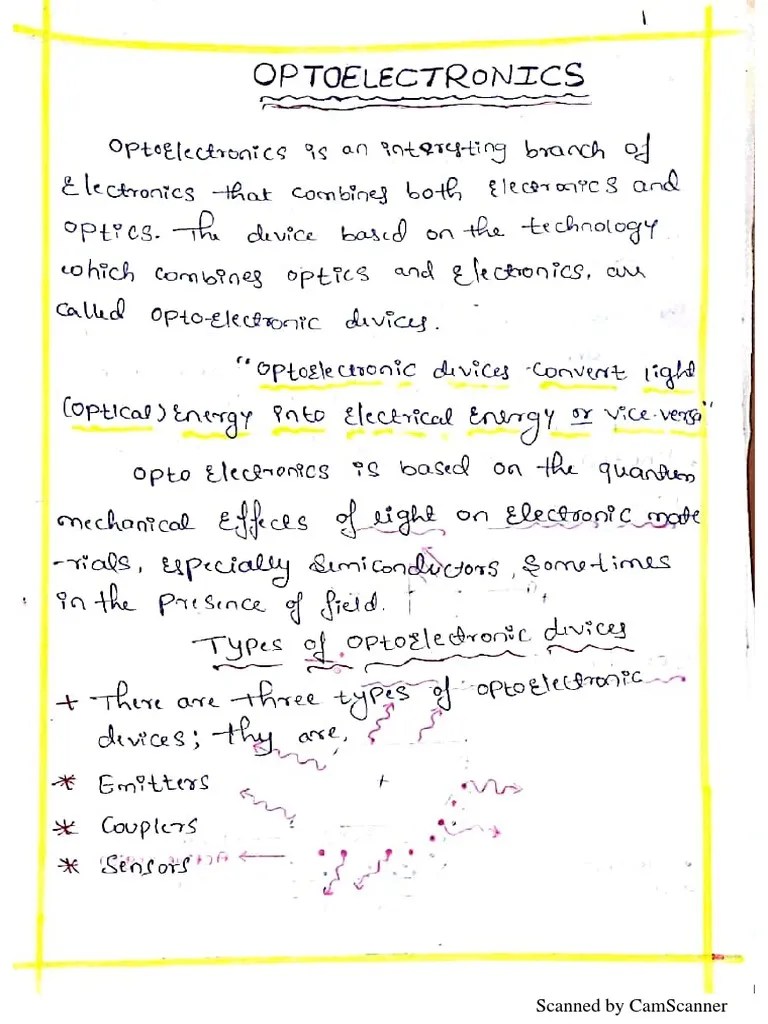 1
OPTOELECTRONICS
Optoelectronics is an interesting branch of
Electronics that combines both Elecoronics and
optics. The device based on the technology
which combines optics and Electronics, are
called opto-electronic devices.
"Optoelectronic devices convert light
(optical) Energy into Electrical Energy or vice-versa"
opto Electronics is based on the quantum
mechanical Effects of light on Electronic mate
-rials, Especially Semiconductors, Sometimes
in the presence of field.
Types of optoelectronic devices
+ There are three types of optoelectronic
devices; they are,
* Emitters
* Couplers
* Sensors
Scanned by CamScanner